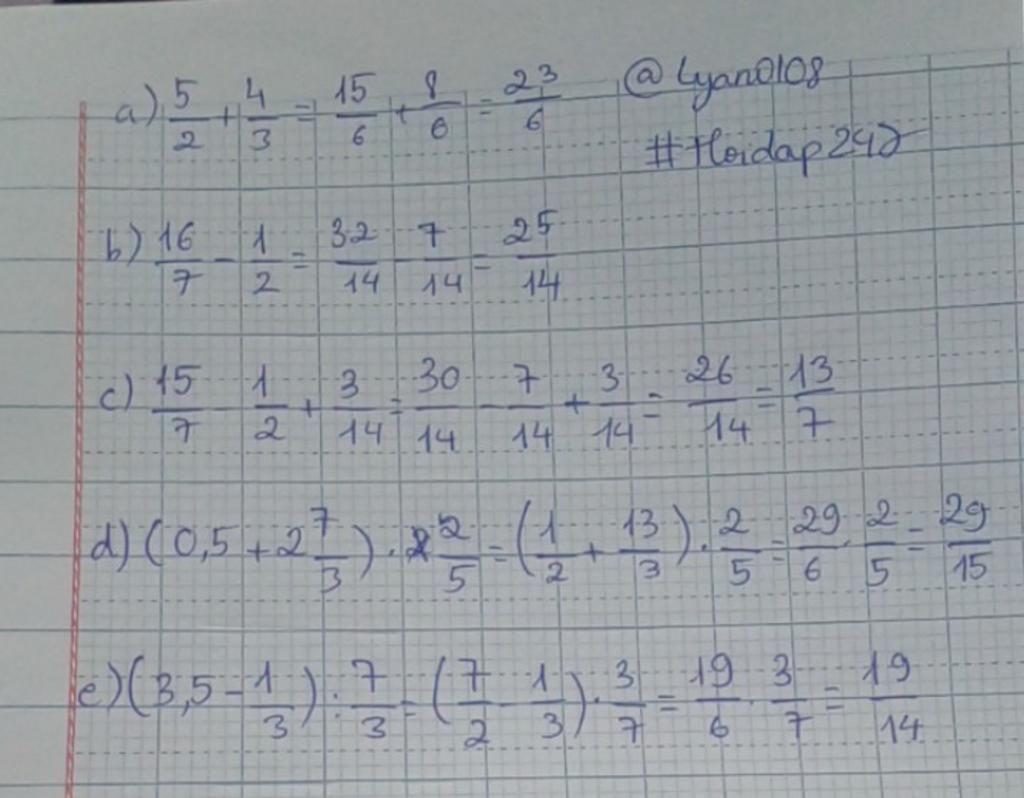 a) 5/2 + 4/3 = 15/6 + 8/6 = 23/6 @Lyan0108
#Hoidap247
b) 16/7 - 1/2 = 32/14 - 7/14 = 25/14
c) 15/7 - 1/2 + 3/14 = 30/14 - 7/14 + 3/14 = 26/14 = 13/7
d) (0,5 + 2 7/3) . 2/5 = (1/2 + 13/3) . 2/5 = 29/6 . 2/5 = 29/15
e) (3,5 - 1/3) : 7/3 = (7/2 - 1/3) . 3/7 = 19/6 . 3/7 = 19/14